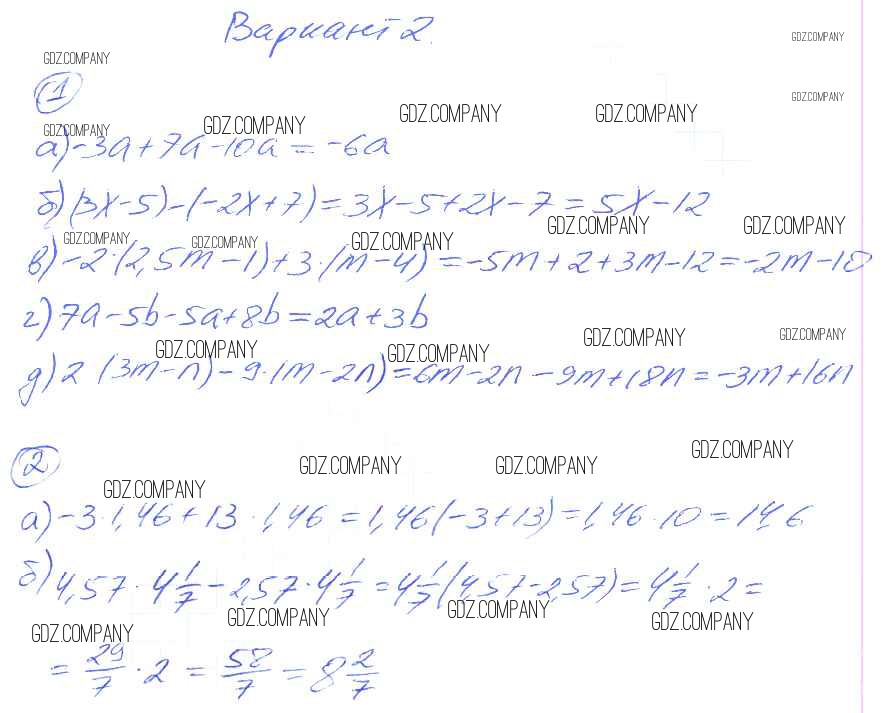 Вариант 2.
GDZ.COMPANY
GDZ.COMPANY
1
GDZ.COMPANY
GDZ.COMPANY GDZ.COMPANY GDZ.COMPANY GDZ.COMPANY
а) -3a + 7a - 10a = -6a
б) (3x - 5) - (-2x + 7) = 3x - 5 + 2x - 7 = 5x - 12
GDZ.COMPANY GDZ.COMPANY GDZ.COMPANY GDZ.COMPANY GDZ.COMPANY
в) -2·(2,5m - 1) + 3·(m - 4) = -5m + 2 + 3m - 12 = -2m - 10
г) 7a - 5b - 5a + 8b = 2a + 3b
GDZ.COMPANY GDZ.COMPANY GDZ.COMPANY GDZ.COMPANY
д) 2 (3m - n) - 9·(m - 2n) = 6m - 2n - 9m + 18n = -3m + 16n
2
GDZ.COMPANY GDZ.COMPANY GDZ.COMPANY GDZ.COMPANY
а) -3·1,46 + 13·1,46 = 1,46(-3 + 13) = 1,46·10 = 14,6
б) 4,57·4 1/7 - 2,57·4 1/7 = 4 1/7 (4,57 - 2,57) = 4 1/7 · 2 =
GDZ.COMPANY GDZ.COMPANY GDZ.COMPANY GDZ.COMPANY
= 29/7 · 2 = 58/7 = 8 2/7